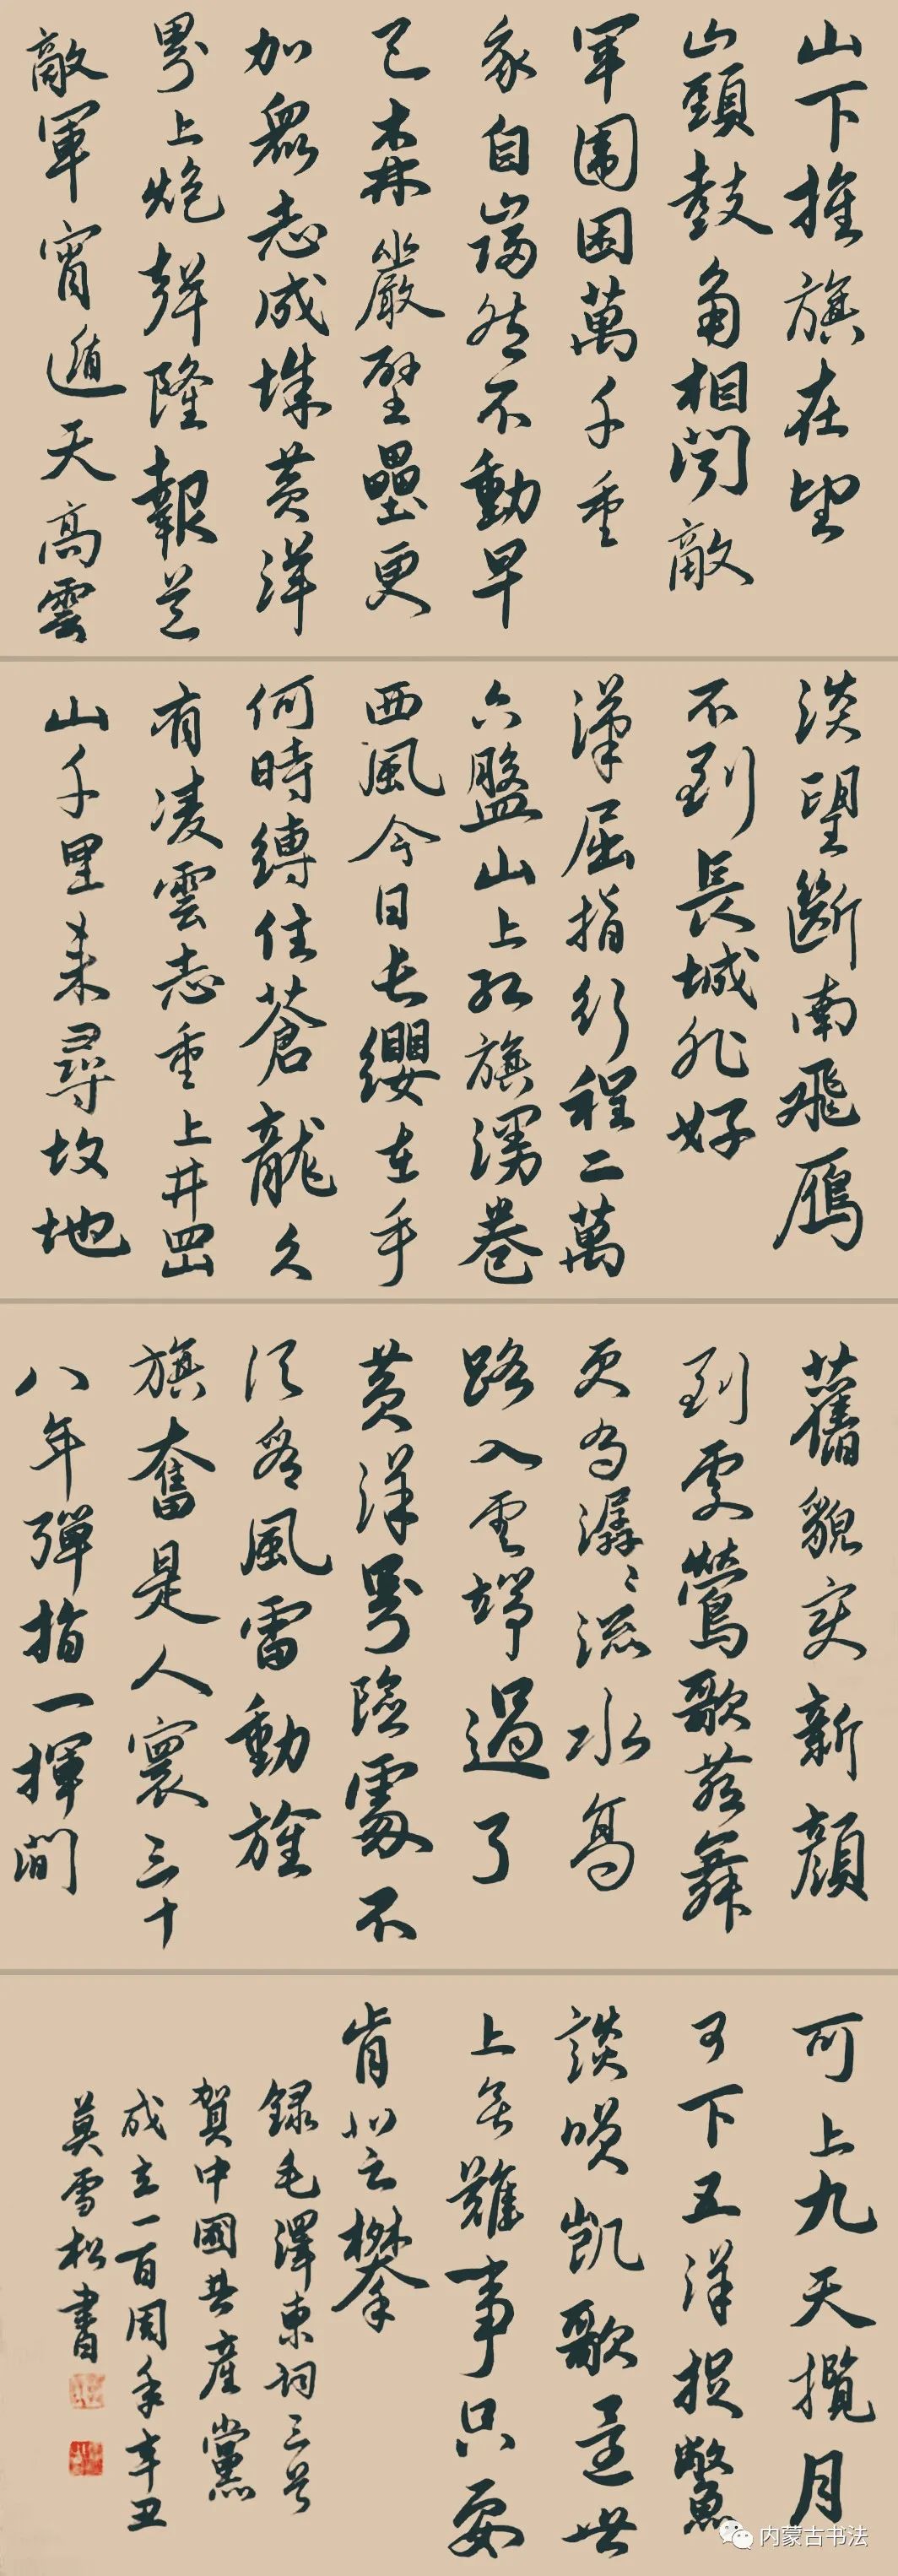 山下旌旗在望
山頭鼓角相聞敵
軍围困萬千重
我自巋然不動早
已森嚴壁壘更
加衆志成城黄洋
界上炮聲隆報道
敵軍宵遁天高雲
淡望斷南飛雁
不到長城非好
漢屈指行程二萬
六盤山上紅旗漫卷
西風今日長纓在手
何時縛住蒼龍久
有凌雲志重上井岡
山千里來尋故地
舊貌变新顔
到處鶯歌燕舞
更有潺潺流水高
路入雲端過了
黄洋界險處不
須看風雷動旌
旗奮是人寰三十
八年彈指一揮間
可上九天攬月
可下五洋捉鱉
談笑凯歌還世
上無難事只要
肯登攀
録毛澤東詞三首
賀中國共產黨
成立一百周年辛丑
莫雪松書
内蒙古书法